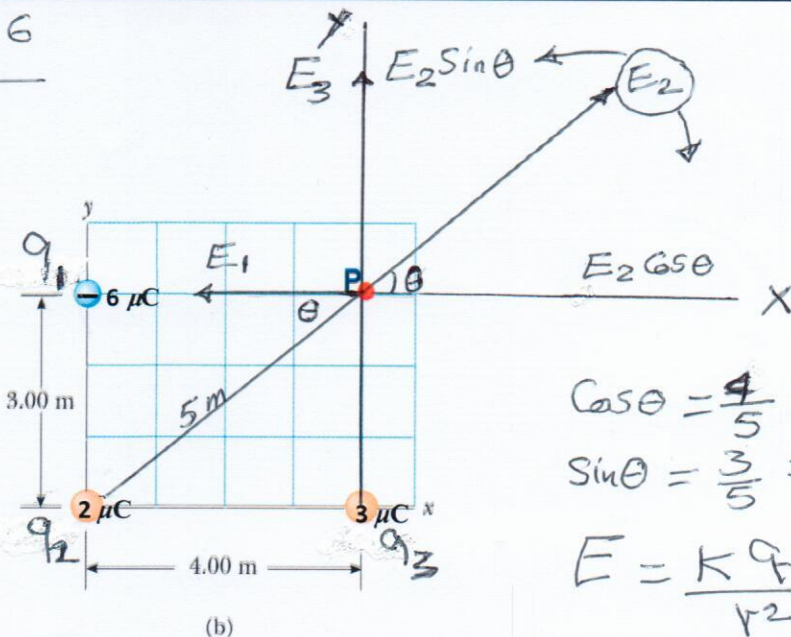 6
y
E₃
E₂ Sinθ
E₂
y
q₁
E₁
P
θ
E₂ Cosθ
– 6 μC
θ
X
3.00 m
5 m
Cosθ = 4/5
Sinθ = 3/5
2 μC
3 μC
x
q₂
q₃
4.00 m
E = K q / r²
(b)